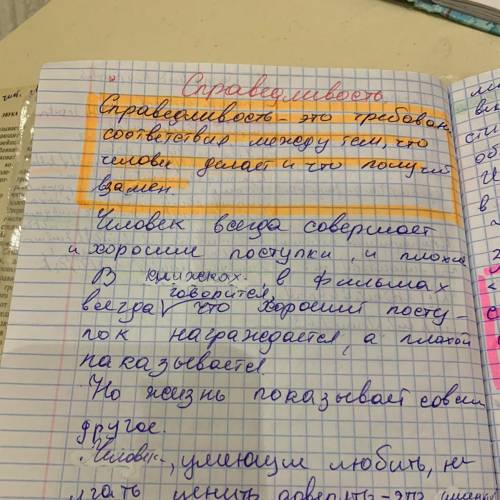 Справедливость
Справедливость - это требован
соответствия между тем, что
человек делает и что получил
взамен.
Человек всегда совершает
и хорошие поступки, и плохие
В книжках, в фильмах
говорится,
всегда что хороший посту-
пок награждается, а плохой
наказывается
Но жизнь показывает совсем
другое.
Человек, умеющий любить, не
лгать, ценить доверять - это